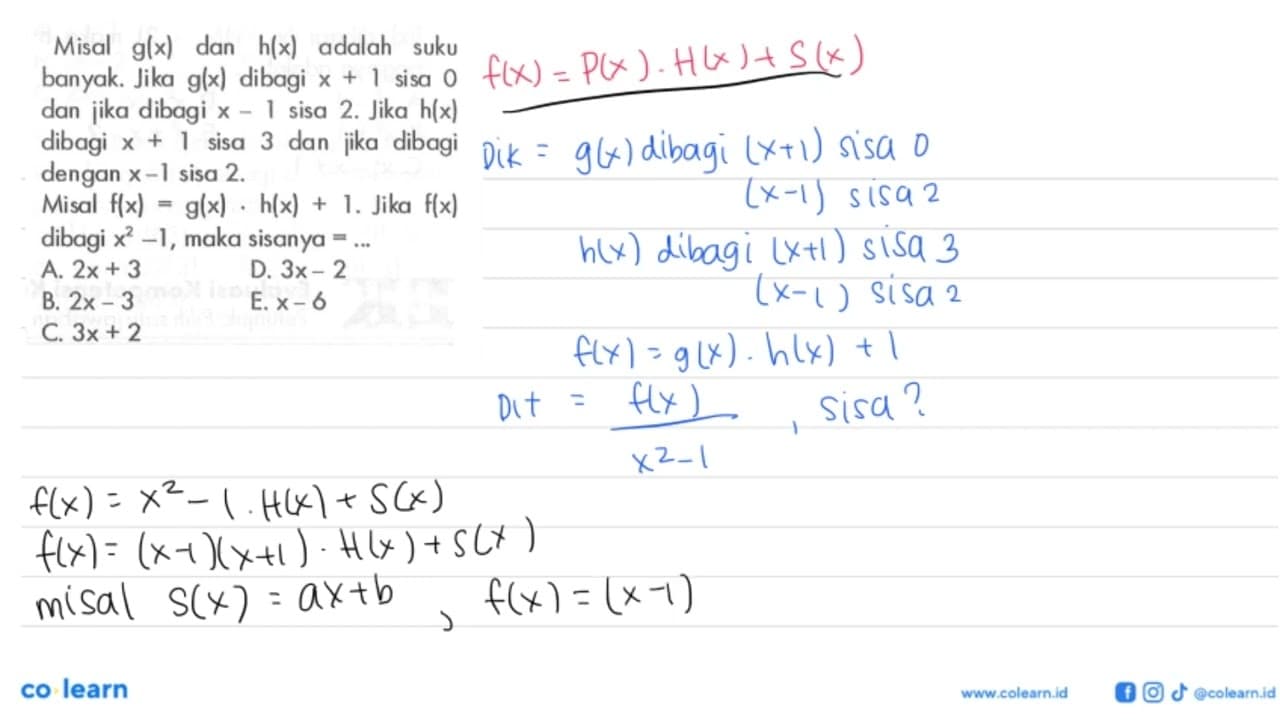 Misal g(x) dan h(x) adalah suku
banyak. Jika g(x) dibagi x + 1 sisa 0
dan jika dibagi x – 1 sisa 2. Jika h(x)
dibagi x + 1 sisa 3 dan jika dibagi
dengan x–1 sisa 2.
Misal f(x) = g(x) · h(x) + 1. Jika f(x)
dibagi x² –1, maka sisanya = ...
A. 2x + 3 D. 3x – 2
B. 2x – 3 E. x – 6
C. 3x + 2
f(x) = P(x) . H(x) + S(x)
Dik = g(x) dibagi (x+1) sisa 0
(x-1) sisa 2
h(x) dibagi (x+1) sisa 3
(x-1) sisa 2
f(x) = g(x) . h(x) + 1
Dit = f(x) , sisa?
x²-1
f(x) = x² - 1 . H(x) + S(x)
f(x) = (x-1)(x+1) . H(x) + S(x)
misal S(x) = ax+b , f(x) = (x-1)
co learn
www.colearn.id
@colearn.id